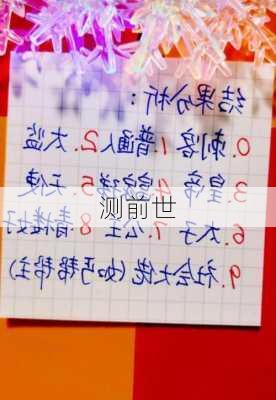 结果分析：
0.刺客 1.普通人 2.太监
3.皇帝 4. 5.天使
测前世
6.太子 7.公主 8.青楼女子
9.社会大佬(如丐帮帮主)